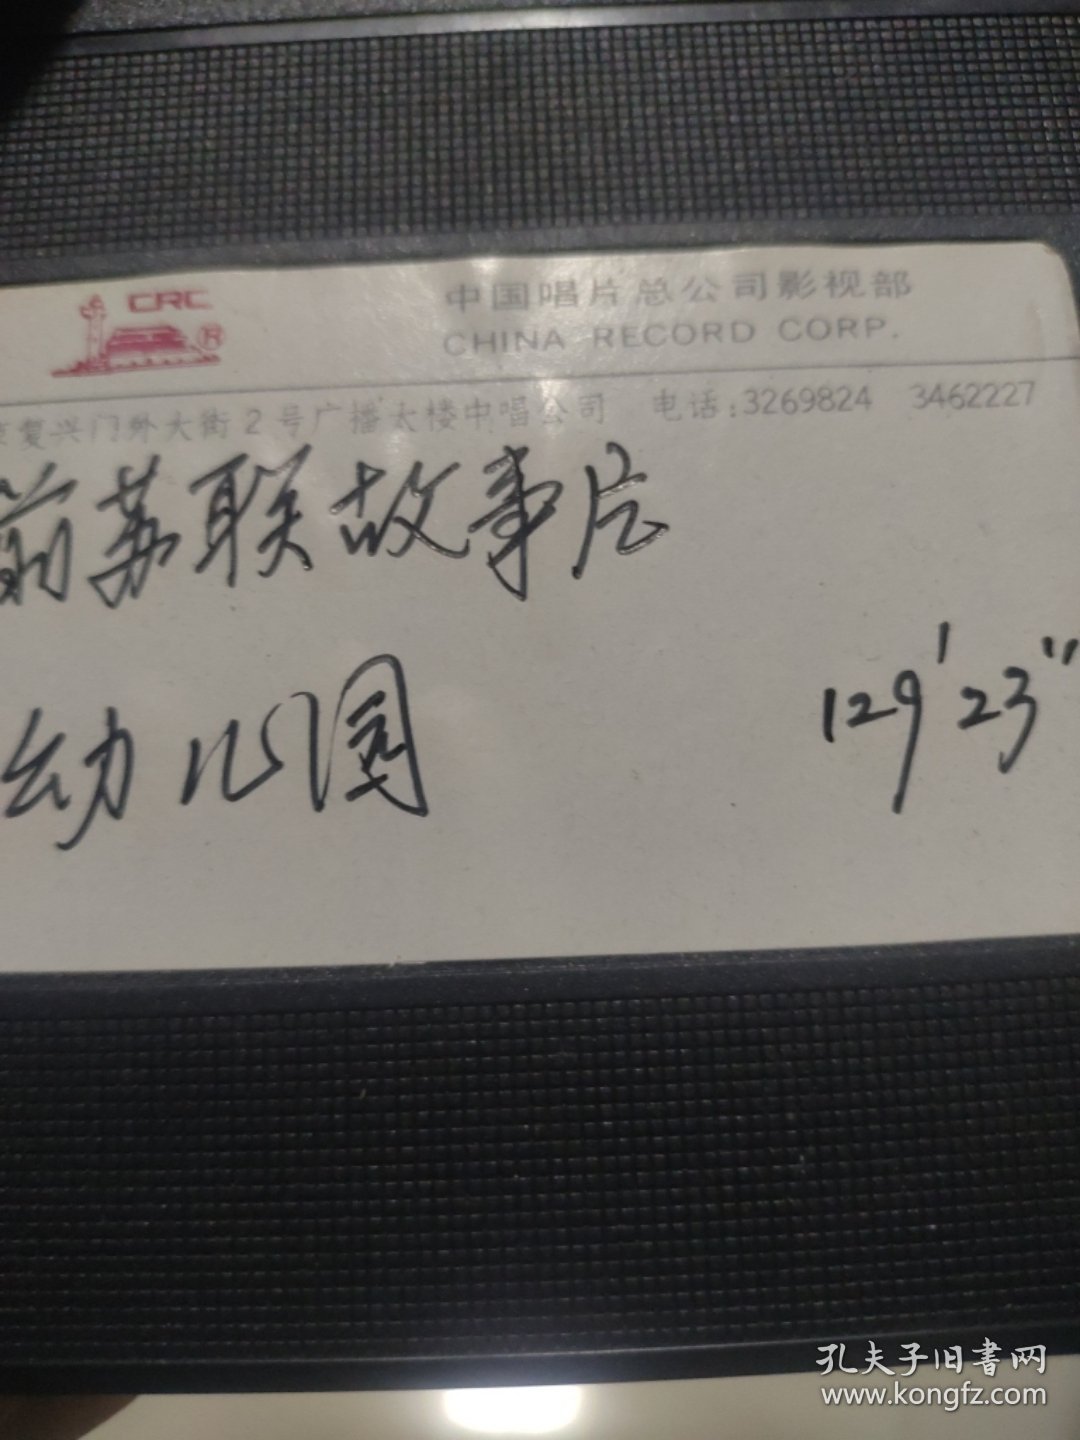 CRC
®
中国唱片总公司影视部
CHINA RECORD CORP.
京复兴门外大街2号广播大楼中唱公司 电话:3269824 3462227
前苏联故事片
幼儿园 129'23"
孔夫子旧书网
www.kongfz.com